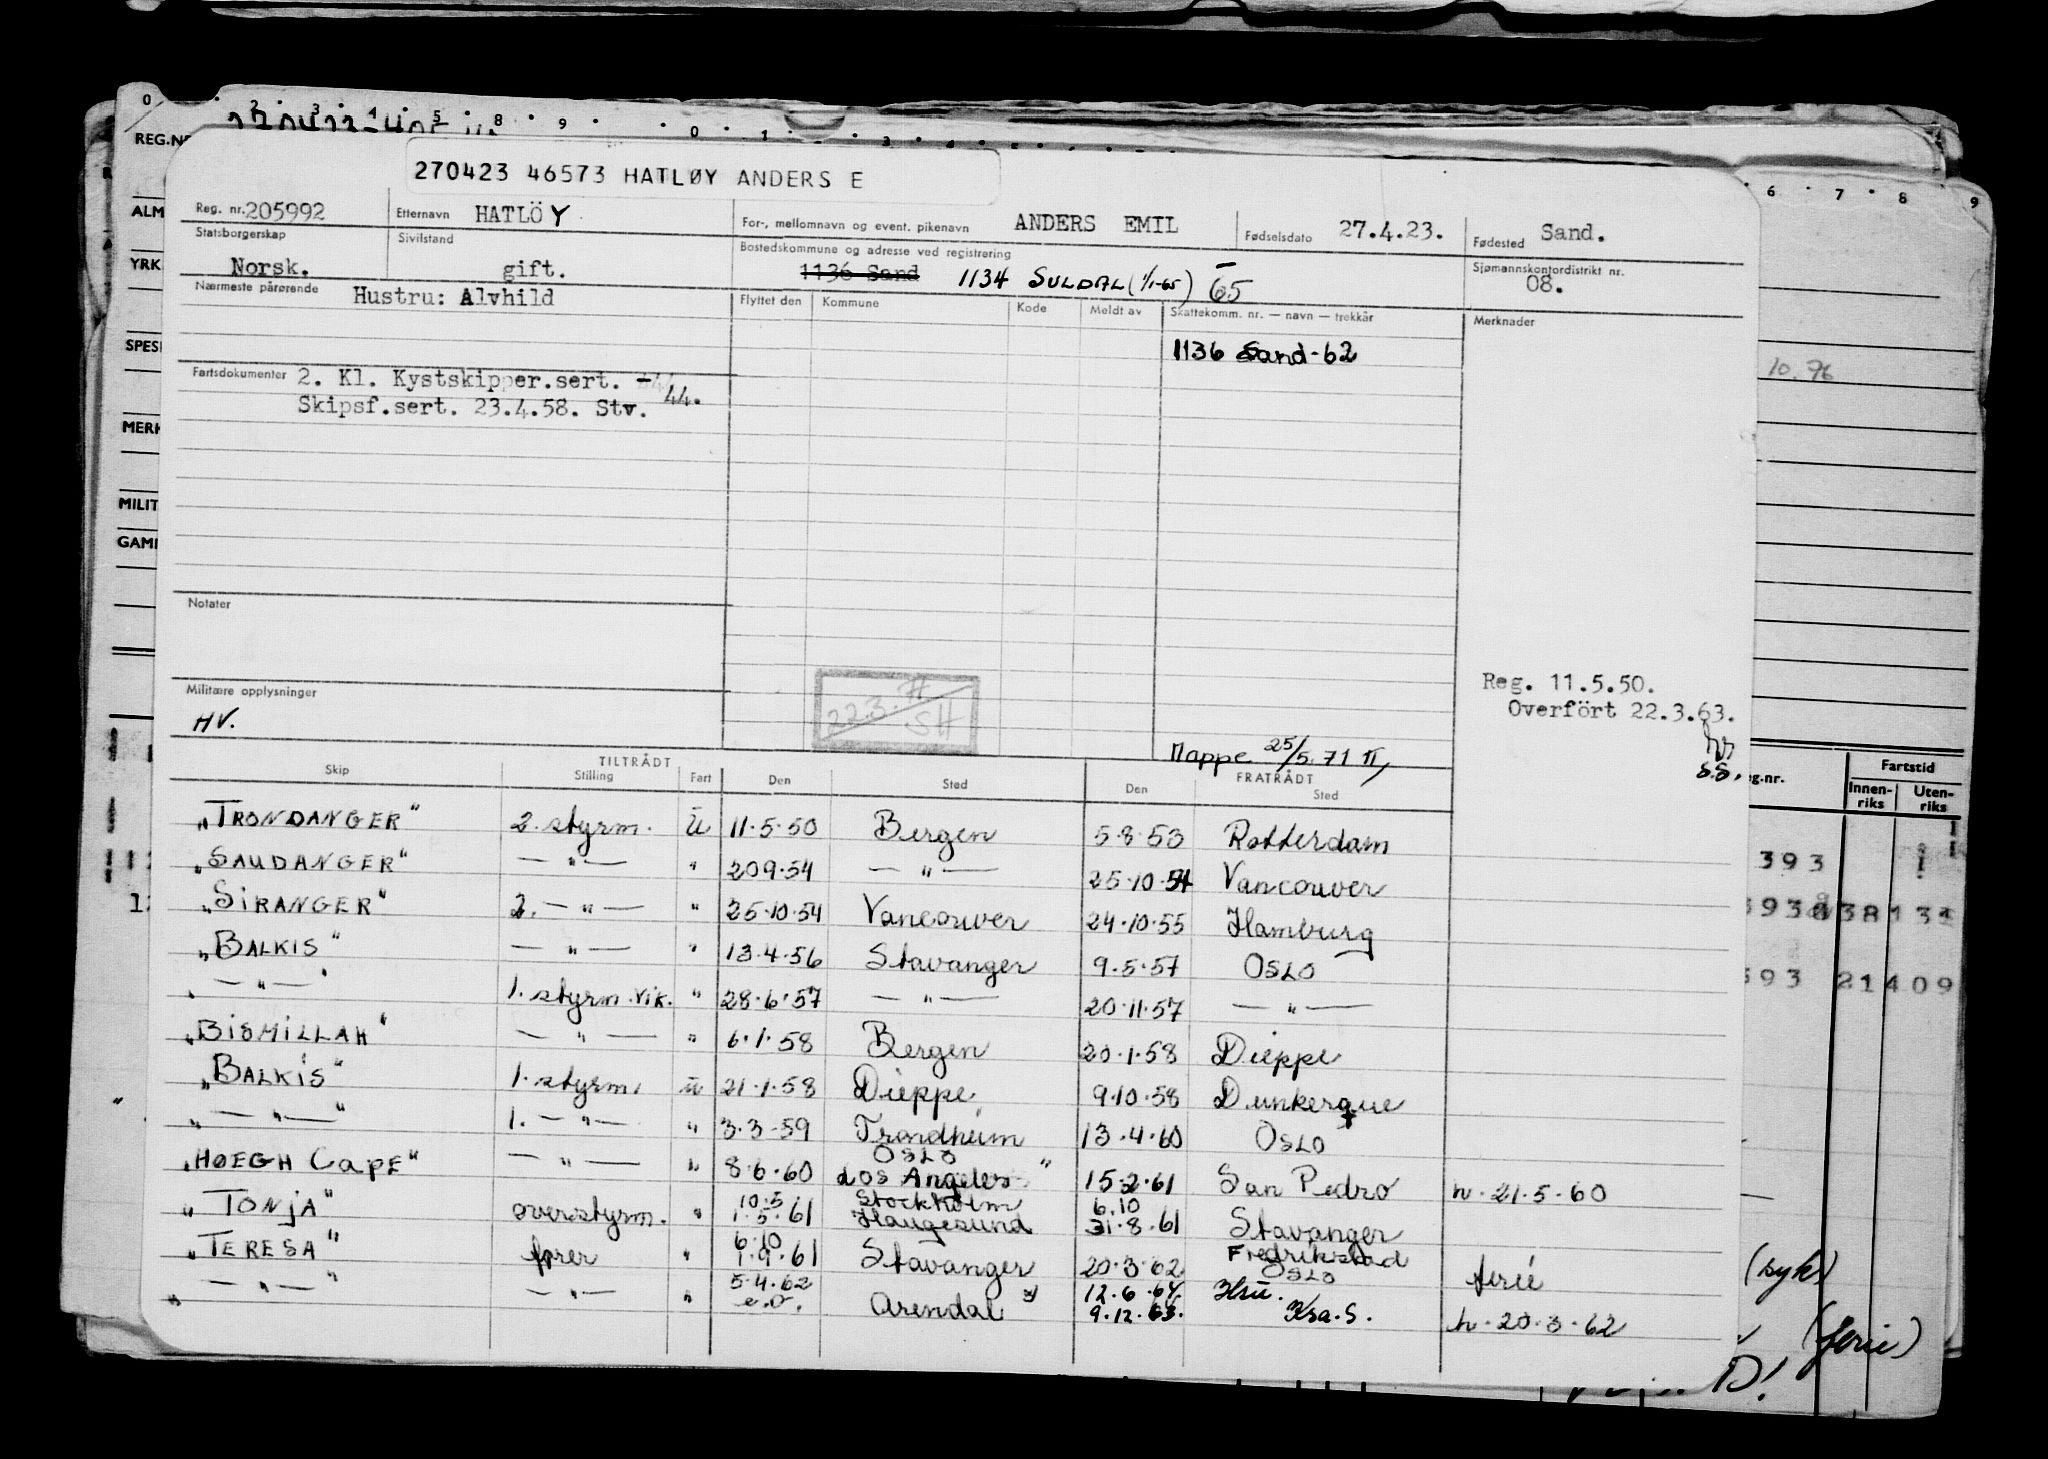 270423 46573 HATLØY ANDERS E
Reg. nr. 205992 Etternavn HATLÖY For-, mellomnavn og event. pikenavn ANDERS EMIL Fødselsdato 27.4.23. Fødested Sand.
Statsborgerskap Norsk. Sivilstand gift. Bostedskommune og adresse ved registrering 1136 Sand 1134 SULDAL (1/1-65) 65 Sjømannskontordistrikt nr. 08.
Nærmeste pårørende Hustru: Alvhild
Flyttet den Kommune Kode Meldt av Skattekomm. nr. — navn — trekkår Merknader
1136 Sand-62
Fartsdokumenter 2. Kl. Kystskipper.sert. 44.
Skipsf.sert. 23.4.58. Stv.
Notater
Militære opplysninger
HV.
22.3.71 SH
Reg. 11.5.50.
Overført 22.3.63.
S.S.
Mappe 25/5.71
TILTRÅDT FRATRÅDT
Skip Stilling Fart Den Sted Den Sted
„TRONDANGER" 2. styrm. U 11.5.50 Bergen 5.8.53 Rotterdam
„SAUDANGER" —"— " 20.9.54 —"— 25.10.54 Vancouver
„SIRANGER" 2. —"— " 25.10.54 Vancouver 24.10.55 Hamburg
„BALKIS" —"— " 13.4.56 Stavanger 9.5.57 OSLO
„—"—" 1. styrm. vik. " 28.6.57 —"— 20.11.57 —"—
„BISMILLAH" —"— " 6.1.58 Bergen 20.1.58 Dieppe
„BALKIS" 1. styrm. u 21.1.58 Dieppe 9.10.58 Dunkerque
„—"—" 1. —"— " 3.3.59 Trondheim 13.4.60 OSLO
„HØEGH CAPE" —"— " 8.6.60 OSLO Los Angeles " 15.2.61 San Pedro h. 21.5.60
„TONJA" overstyrm. " 10.5 1.5.61 Stockholm Haugesund 6.10 31.8.61 Stavanger
„TERESA" fører " 6.10 1.9.61 Stavanger 20.3.62 Fredrikstad OSLO ferie
„—"—" —"— " 5.4.62 e.o. Arendal 12.6.64. Hsu.
9.12.63. Kra.S. h. 20.3.62
REG.N
ALM
YRK
SPES
MERK
MILIT
GAM
10.76
eg.nr. Fartstid
Innen-riks Uten-riks
393
593 21409
(syk)
(ferie)